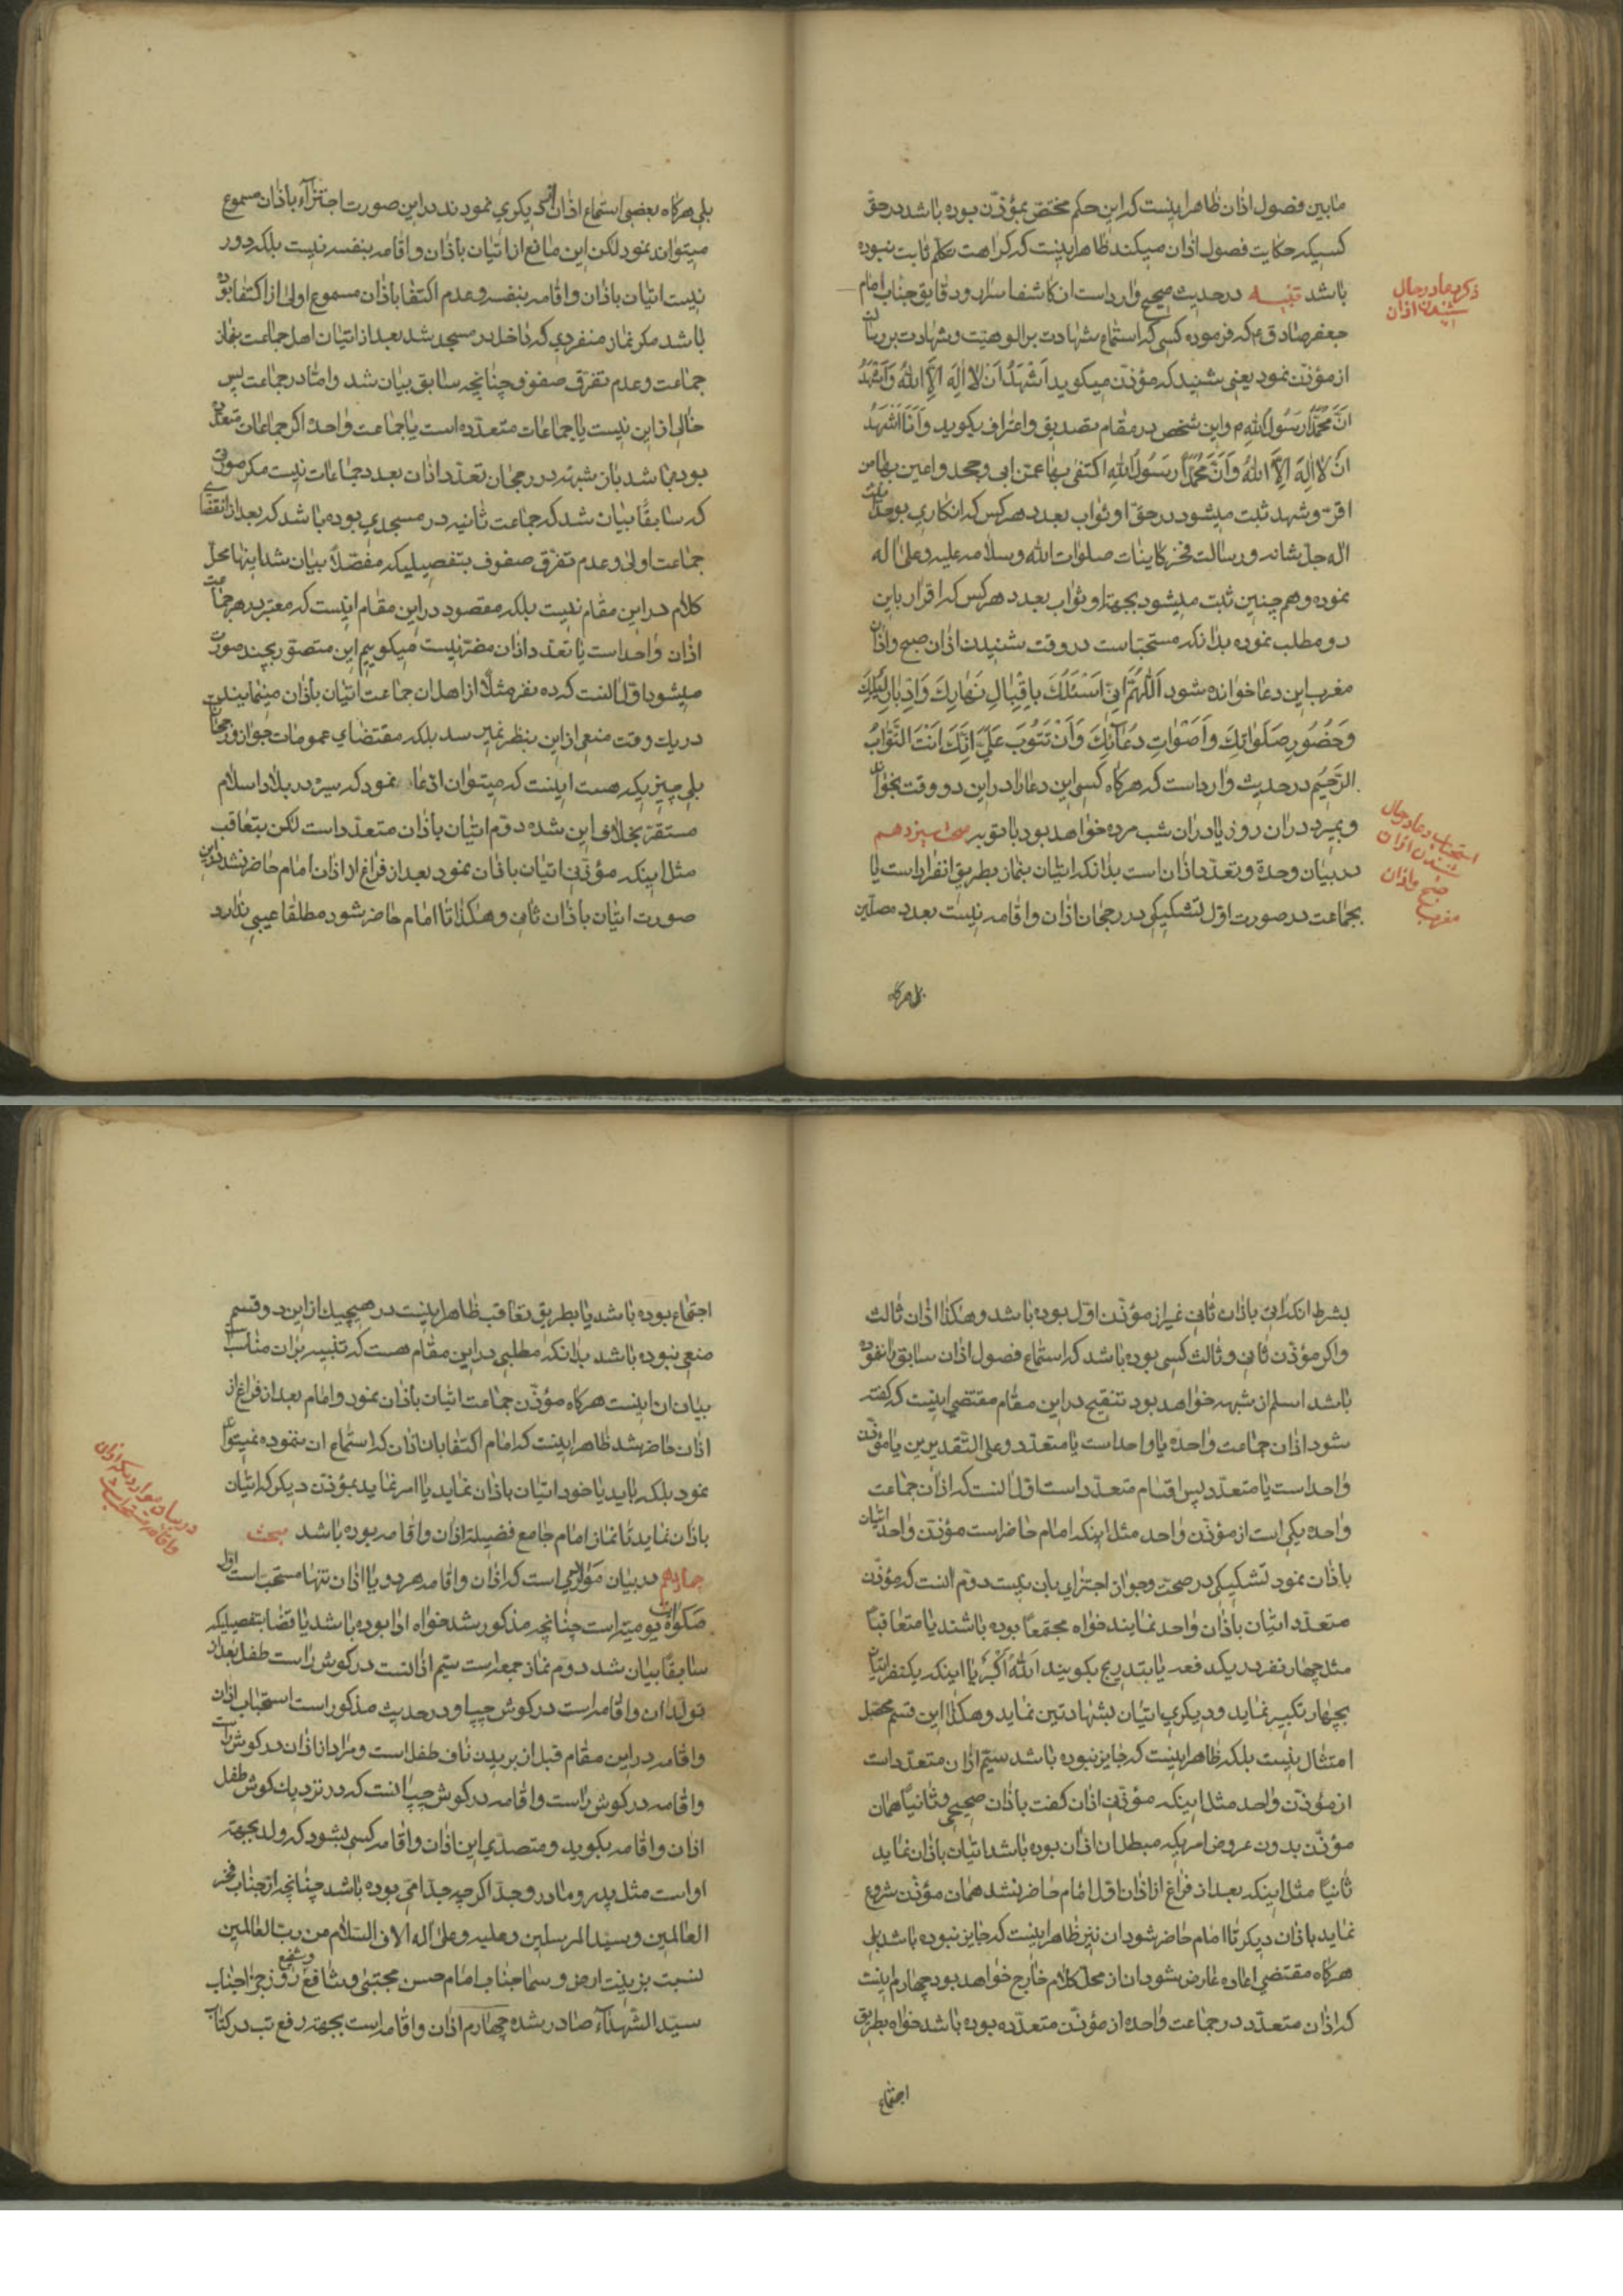 مابین فصول اذان ظاهر اینست که این حکم مختص بمؤذن بوده باشد در حق
کسیکه حکایت فصول اذان میکند ظاهر اینست که کراهت تکلم ثابت نبوده
باشد تنبیه در حدیث صحیح وارد است از کاشف اسرار و دقایق جناب امام
جعفر صادق ع که فرموده کسی که استماع شهادت بر الوهیّت و شهادت بر رسالت
از مؤذن نمود یعنی شنید که مؤذن میکوید اَشْهَدُ اَنْ لا اِلٰهَ اِلَّا اللهُ وَاَشْهَدُ
اَنَّ مُحَمَّدًا رَسُولُ اللهِ م و این شخص در مقام تصدیق و اعتراف بکوید وَاَنَا اَشْهَدُ
اَنْ لا اِلٰهَ اِلَّا اللهُ وَاَنَّ مُحَمَّدًا رَسُولُ اللهِ اکتفی بهما عمّن ابی و جحد و اعین بهما من
اقرّ و شهد ثبت میشود در حق او ثواب بعدد هر کس که انکار
اله جل شانه و رسالت فخر کاینات صلوات الله و سلامه علیه و علی اله
نموده و هم چنین ثبت میشود بجهة او ثواب بعدد هر کس که اقرار باین
دو مطلب نموده بدانکه مستحب است در وقت شنیدن اذان صبح و اذان
مغرب این دعا خوانده شود اَللّٰهُمَّ اِنّی اَسْئَلُكَ بِاِقْبالِ نَهارِكَ وَاِدْبارِ لَیْلِكَ
وَحُضُورِ صَلَواتِكَ وَاَصْواتِ دُعائِكَ وَاَنْ تَتُوبَ عَلَیَّ اِنَّكَ اَنْتَ التَّوّابُ
الرَّحیمُ در حدیث وارد است که هرکاه کسی این دعا را در این دو وقت بخواند
و بمیرد در ان روز یا در ان شب مرده خواهد بود با توبه مبحث سیزدهم
در بیان وحدة و تعدد اذان است بدانکه اتیان بنماز بطریق انفراد است یا
بجماعت در صورت اول تشکیکی در رجحان اذان و اقامه نیست بعدد مصلّین
بلی هرکاه
ذکر دعا در حال
شنیدن اذان
استحباب دعا در حال
شنیدن اذان
صبح و اذان
مغرب
بلی هرکاه بعضی استماع اذان دیکری نمودند در این صورت اجتزاء باذان مسموع
میتواند نمود لکن این مانع از اتیان باذان و اقامه بنفسه نیست بلکه دور
نیست اتیان باذان و اقامه بنفسه و عدم اکتفا باذان مسموع اولی از اکتفا بوده
باشد مکر نماز منفردی که داخل در مسجد شد بعد از اتیان اهل جماعت بنماز
جماعت و عدم تفرق صفوف چنانچه سابق بیان شد و امّا در جماعت پس
خالی از این نیست یا جماعات متعدده است یا جماعت واحدة اکر جماعات متعدده
بوده باشد باز شبهه در رجحان تعدد اذان بعدد جماعات نیست مکر صورتی
که سابقًا بیان شد که جماعت ثانیه در مسجدی بوده باشد که بعد از انقضای
جماعت اولی و عدم تفرق صفوف بتفصیلیکه مفصّلاً بیان شد اینها محل
کلام در این مقام نیست بلکه مقصود در این مقام اینست که معتبر در هر جماعت
اذان واحد است یا تعدد اذان مضر نیست میکوییم این متصور بچند صورت
میشود اول انست که ده نفر مثلًا از اهل ان جماعت اتیان باذان مینمایند
در یك وقت منعی از این بنظر نمیرسد بلکه مقتضای عمومات جواز و رجحان
بلی چیزیکه هست اینست که میتوان ادّعا نمود که سیره در بلاد اسلام
مستقر بخلاف این شده دوم اتیان باذان متعدد است لکن بتعاقب
مثل اینکه مؤذنی اتیان باذان نمود بعد از فراغ از اذان امام حاضر نشد در این
صورت اتیان باذان ثانی و هکذا تا امام حاضر شود مطلقا عیبی ندارد
بشرط انکه اتی باذان ثانی غیر از مؤذن اول بوده باشد و هکذا اذان ثالث
واکر مؤذن ثانی و ثالث کسی بوده باشد که استماع فصول اذان سابق را ننموده
باشد اسلم از شبهه خواهد بود تنقیح در این مقام مقتضی اینست که کفته
شود اذان جماعت واحده یا واحد است یا متعدد و علی التقدیرین یا مؤذن
واحد است یا متعدد پس اقسام متعدد است اول انست که اذان جماعت
واحده یکی است از مؤذن واحد مثل اینکه امام حاضر است مؤذن واحد اتیان
باذان نمود تشکیکی در صحت و جواز اجتزای بان نیست دوم انست که مؤذن
متعدد اتیان باذان واحد نمایند خواه مجتمعًا بوده باشند یا متعاقبًا
مثل چهار نفر در یکدفعه یا بتدریج بکویند اَللهُ اَکْبَرُ یا اینکه یکنفر اتیان
بچهار تکبیر نماید و دیکری اتیان بشهادتین نماید و هکذا این قسم محتمل
امتثال نیست بلکه ظاهر اینست که جایز نبوده باشد سیّم اذان متعدد است
از مؤذن واحد مثل اینکه مؤذنی اذان کفت باذان صحیحی و ثانیًا همان
مؤذن بدون عروض امریکه مبطل ان اذان بوده باشد اتیان باذان نماید
ثانیًا مثل اینکه بعد از فراغ از اذان اول امام حاضر نشد همان مؤذن شروع
نماید باذان دیکر تا امام حاضر شود ان نیز ظاهر اینست که جایز نبوده باشد بلی
هرکاه مقتضی اعاده عارض شود ان از محل کلام خارج خواهد بود چهارم اینست
که اذان متعدد در جماعت واحده از مؤذن متعدده بوده باشد خواه بطریق
اجتماع
اجتماع بوده باشد یا بطریق تعاقب ظاهر اینست در هیچیك از این دو قسم
منعی نبوده باشد بدانکه مطلبی در این مقام هست که تنبیه بر ان مناسب است
بیان ان اینست هرکاه مؤذن جماعت اتیان باذان نمود و امام بعد از فراغ از
اذان حاضر شد ظاهر اینست که امام اکتفا بان اذان که استماع ان ننموده نمیتواند
نمود بلکه باید یا خود اتیان باذان نماید یا امر نماید بمؤذن دیکر که اتیان
باذان نماید تا نماز امام جامع فضیلة اذان و اقامه بوده باشد مبحث
چهاردهم در بیان مواردی است که اذان و اقامه هر دو یا اذان تنها مستحب است اول
صلوات یومیّه است چنانچه مذکور شد خواه ادا بوده باشد یا قضا بتفصیلیکه
سابقًا بیان شد دوم نماز جمعه است سیّم اذانست در کوش راست طفل بعد از
تولد ان و اقامه است در کوش چپ او در حدیث مذکور است استحباب اذان
واقامه در این مقام قبل از بریدن ناف طفل است و مراد از اذان در کوش راست
واقامه در کوش راست و اقامه در کوش چپ انست که در نزدیك کوش طفل
اذان و اقامه بکوید و متصدی این اذان و اقامه کسی بشود که ولد بجهة
او است مثل پدر و مادر و جد اکرچه جدّ امّی بوده باشد چنانچه از جناب فخر
العالمین و سید المرسلین و علیه و علی اله الاف السّلام من رب العالمین
نسبت بزینت ارض و سما جناب امام حسن مجتبی و شافع و شفیع روز جزا جناب
سیّد الشّهداء صادر شده چهارم اذان و اقامه است بجهة رفع تب در کتاب
در بیان مواردیکه اذان
واقامه مستحب است